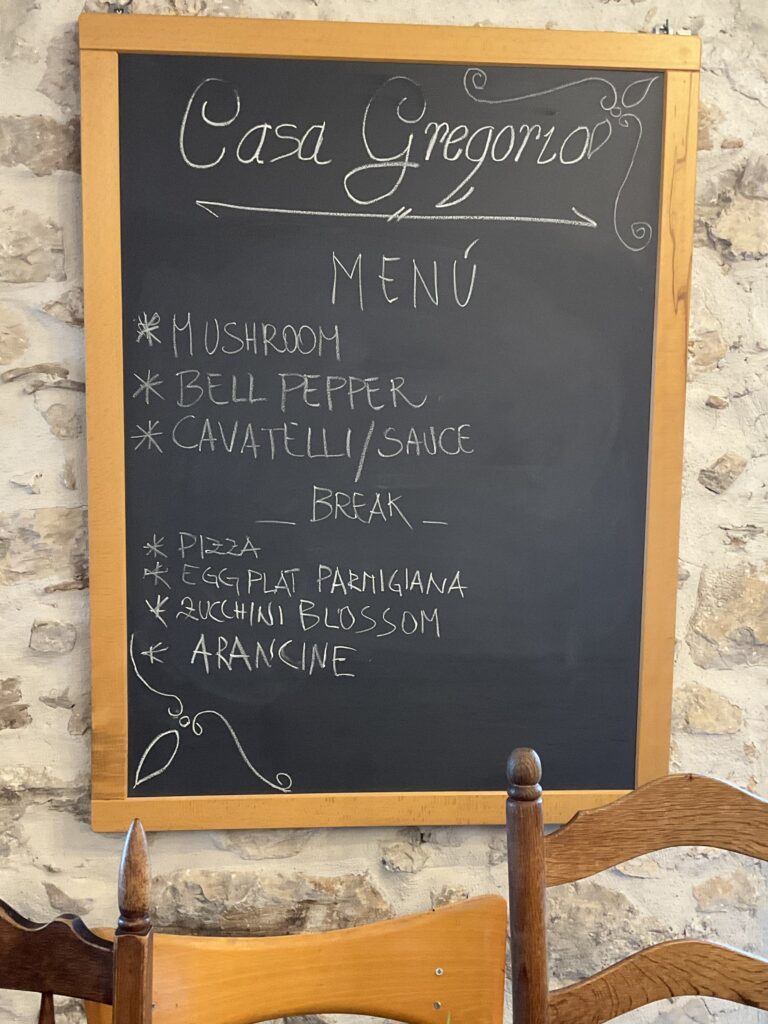 Casa Gregorio
MENÚ
* MUSHROOM
* BELL PEPPER
* CAVATELLI/SAUCE
_ BREAK _
* PIZZA
* EGGPLAT PARMIGIANA
* ZUCCHINI BLOSSOM
* ARANCINE